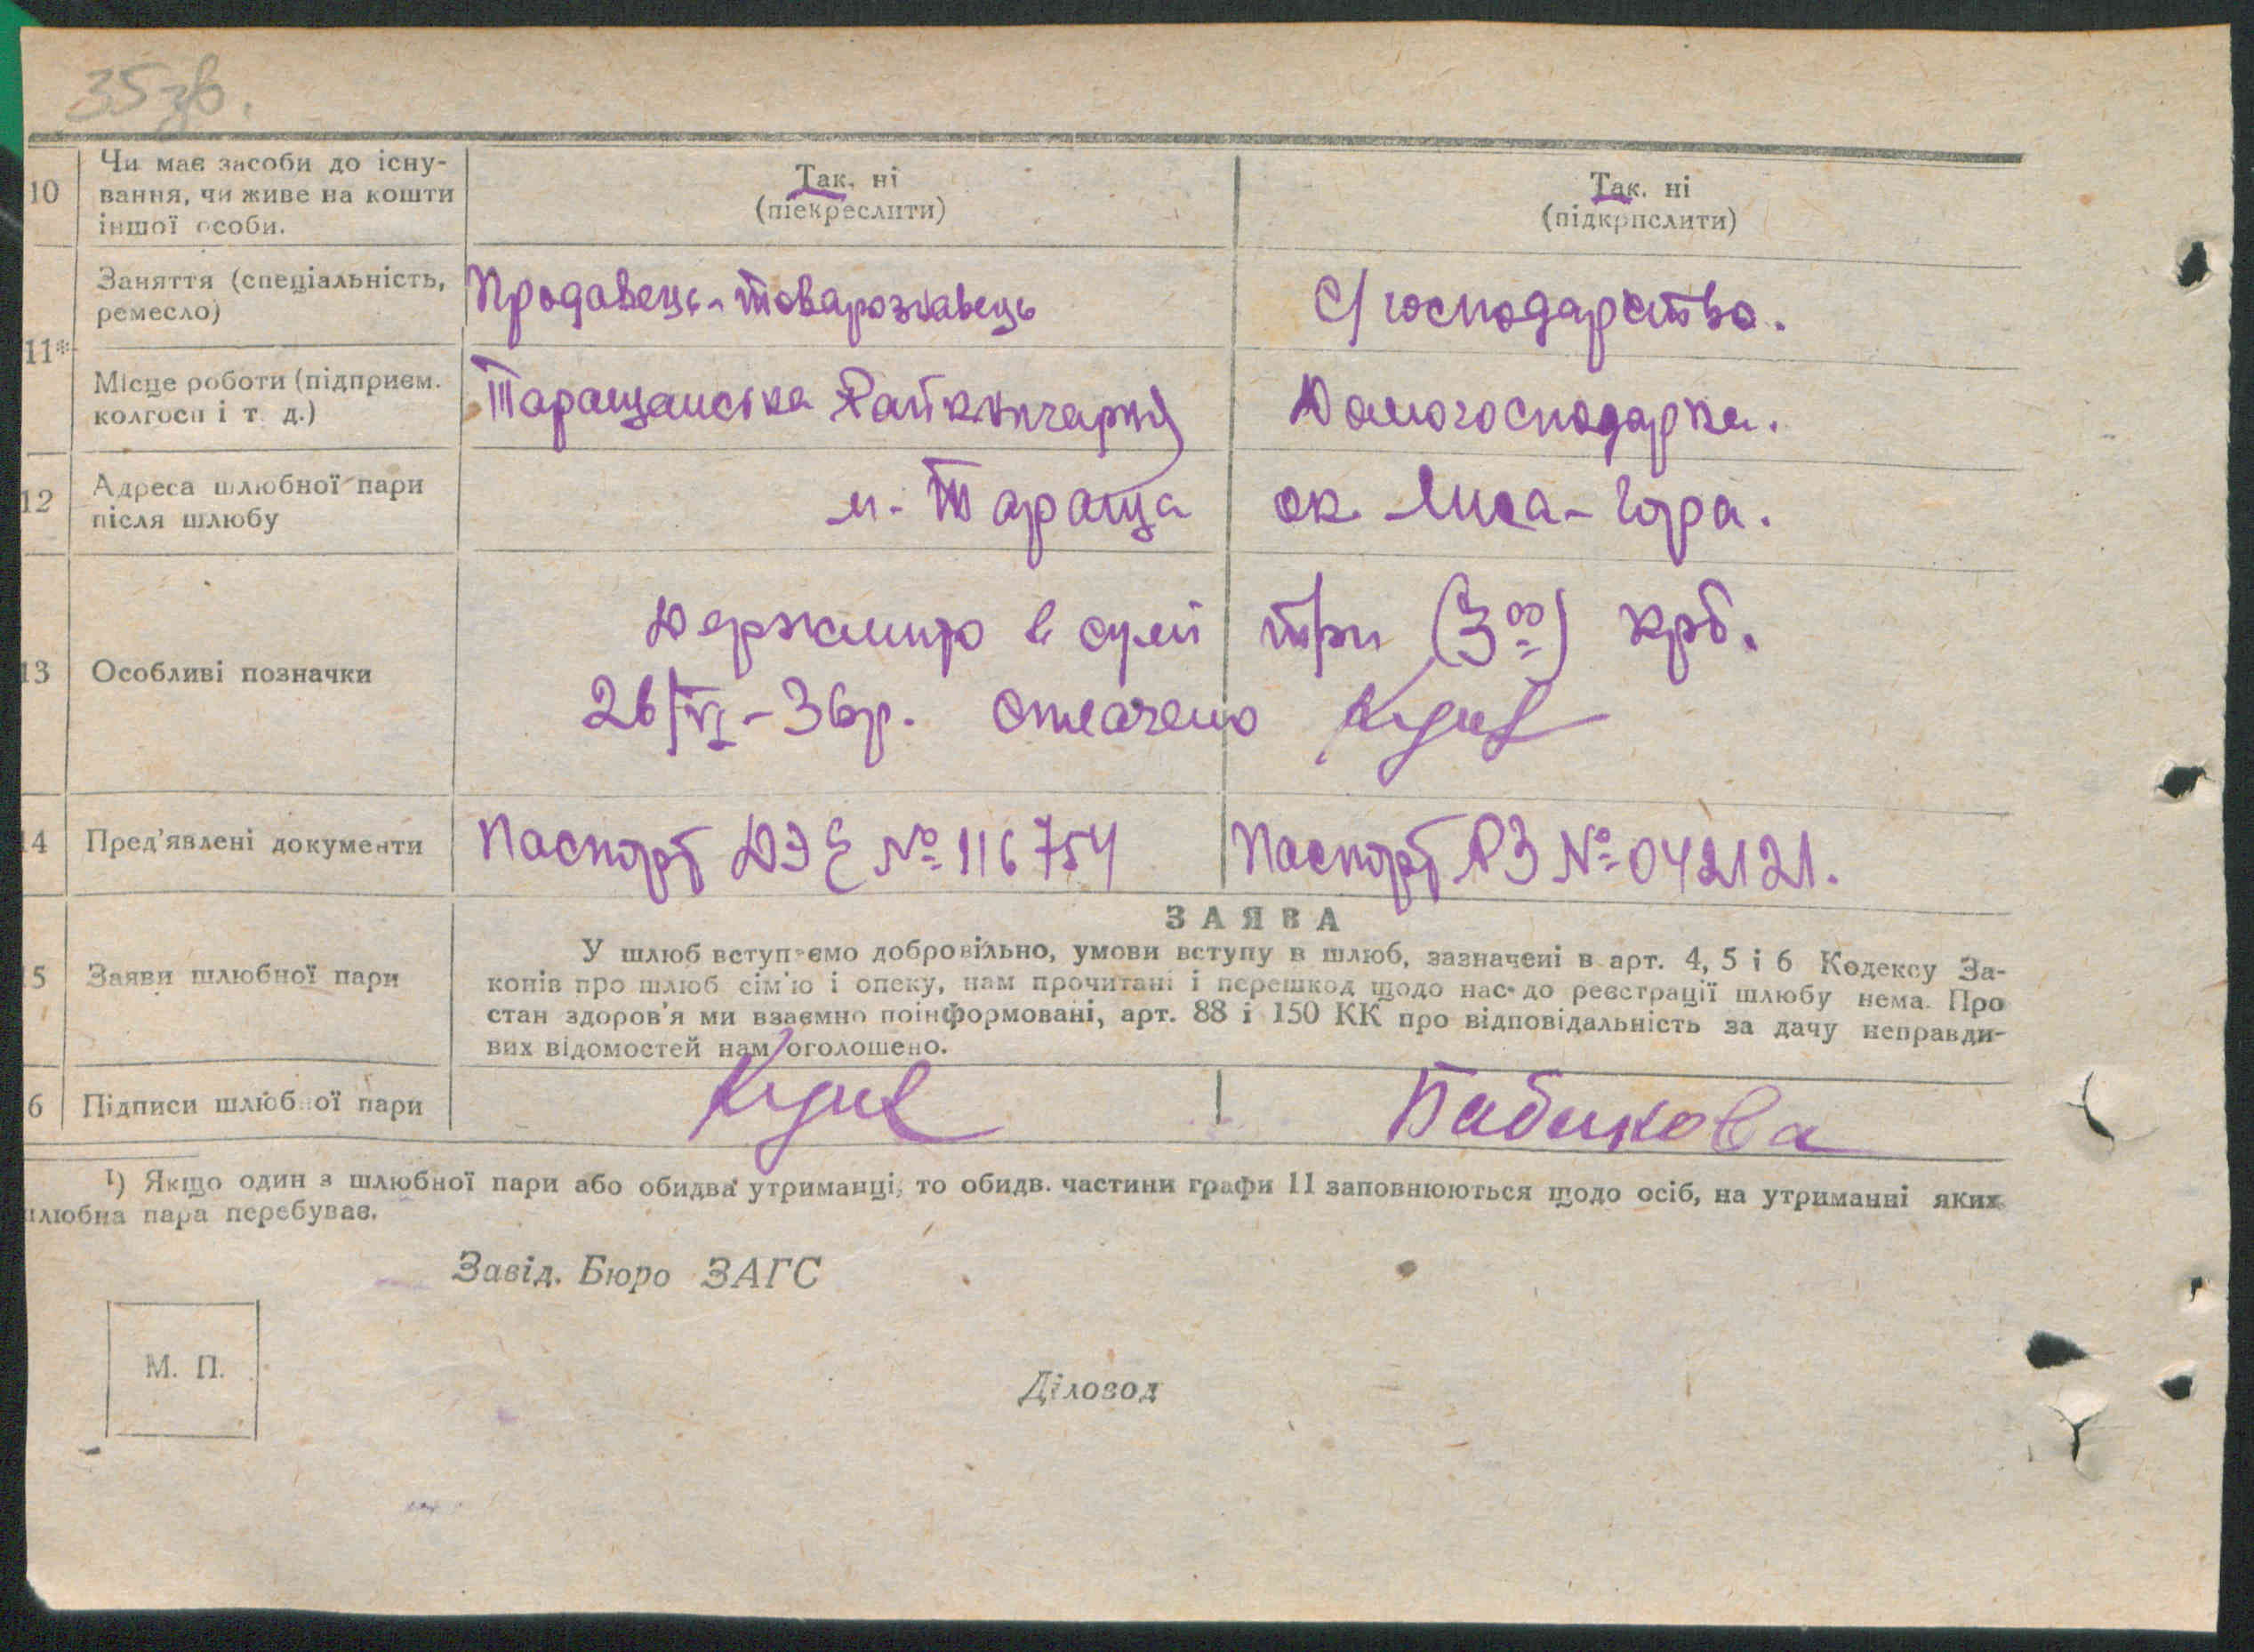 35 зв.
10
Чи має засоби до існу-
вання, чи живе на кошти
іншої особи.
Так, ні
(піекреслити)
Так. ні
(підкрпслити)
11*
Заняття (спеціальність,
ремесло)
Продавець-товарознавець
С/господарство.
Місце роботи (підприєм.
колгосп і т. д.)
Таращанська Райкнигарня
Домогосподарка.
12
Адреса шлюбної пари
після шлюбу
м. Тараща ок. Лиса-Гора.
13
Особливі позначки
Держмито в сумі три (3 00) крб.
26/VI-36р. сплачено
14
Пред'явлені документи
Паспорт ДЭЕ № 116754
Паспорт РЗ № 042121.
ЗАЯВА
5
Заяви шлюбної пари
У шлюб вступаємо добровільно, умови вступу в шлюб, зазначені в арт. 4, 5 і 6 Кодексу За-
конів про шлюб сім'ю і опеку, нам прочитані і перешкод щодо нас до реєстрації шлюбу нема. Про
стан здоров'я ми взаємно поінформовані, арт. 88 і 150 КК про відповідальність за дачу неправди-
вих відомостей нам оголошено.
6
Підписи шлюбної пари
Бабикова
1) Якщо один з шлюбної пари або обидва утриманці, то обидв. частини графи 11 заповнюються щодо осіб, на утриманні яких
шлюбна пара перебуває.
Завід. Бюро ЗАГС
М. П.
Діловод